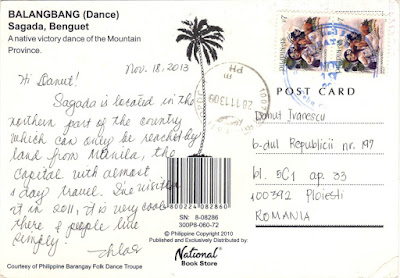 BALANGBANG (Dance)
Sagada, Benguet
A native victory dance of the Mountain
Province.
Nov. 18, 2013
Hi Danut!
Sagada is located in the
northern part of the country
which can only be reached by
land from Manila, the
capital with almost
1 day travel. I've visited
it in 2011, it is very cool
there & people live
simply!
Courtesy of Philippine Barangay Folk Dance Troupe
8800224082860
SN: 8-08286
300P8-060-72
© Philippine Copyright 2010
Published and Exclusively Distributed by:
National
Book Store
PH
POST CARD
Danut Ivanescu
b-dul Republicii nr. 197
bl. 9C1 ap. 33
100392 Ploiesti
ROMANIA